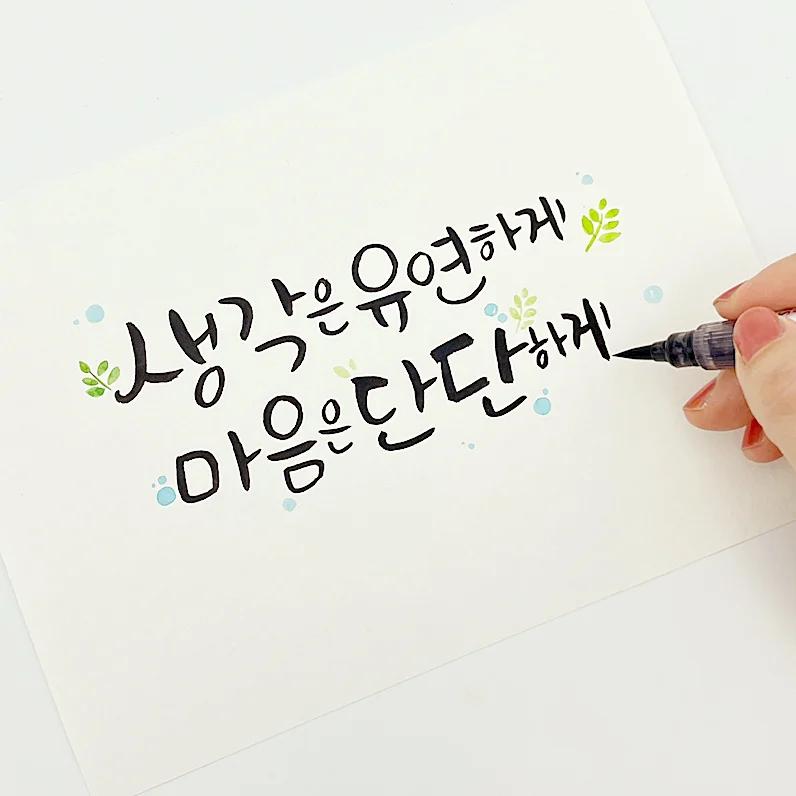 생각은 유연하게
마음은 단단하게